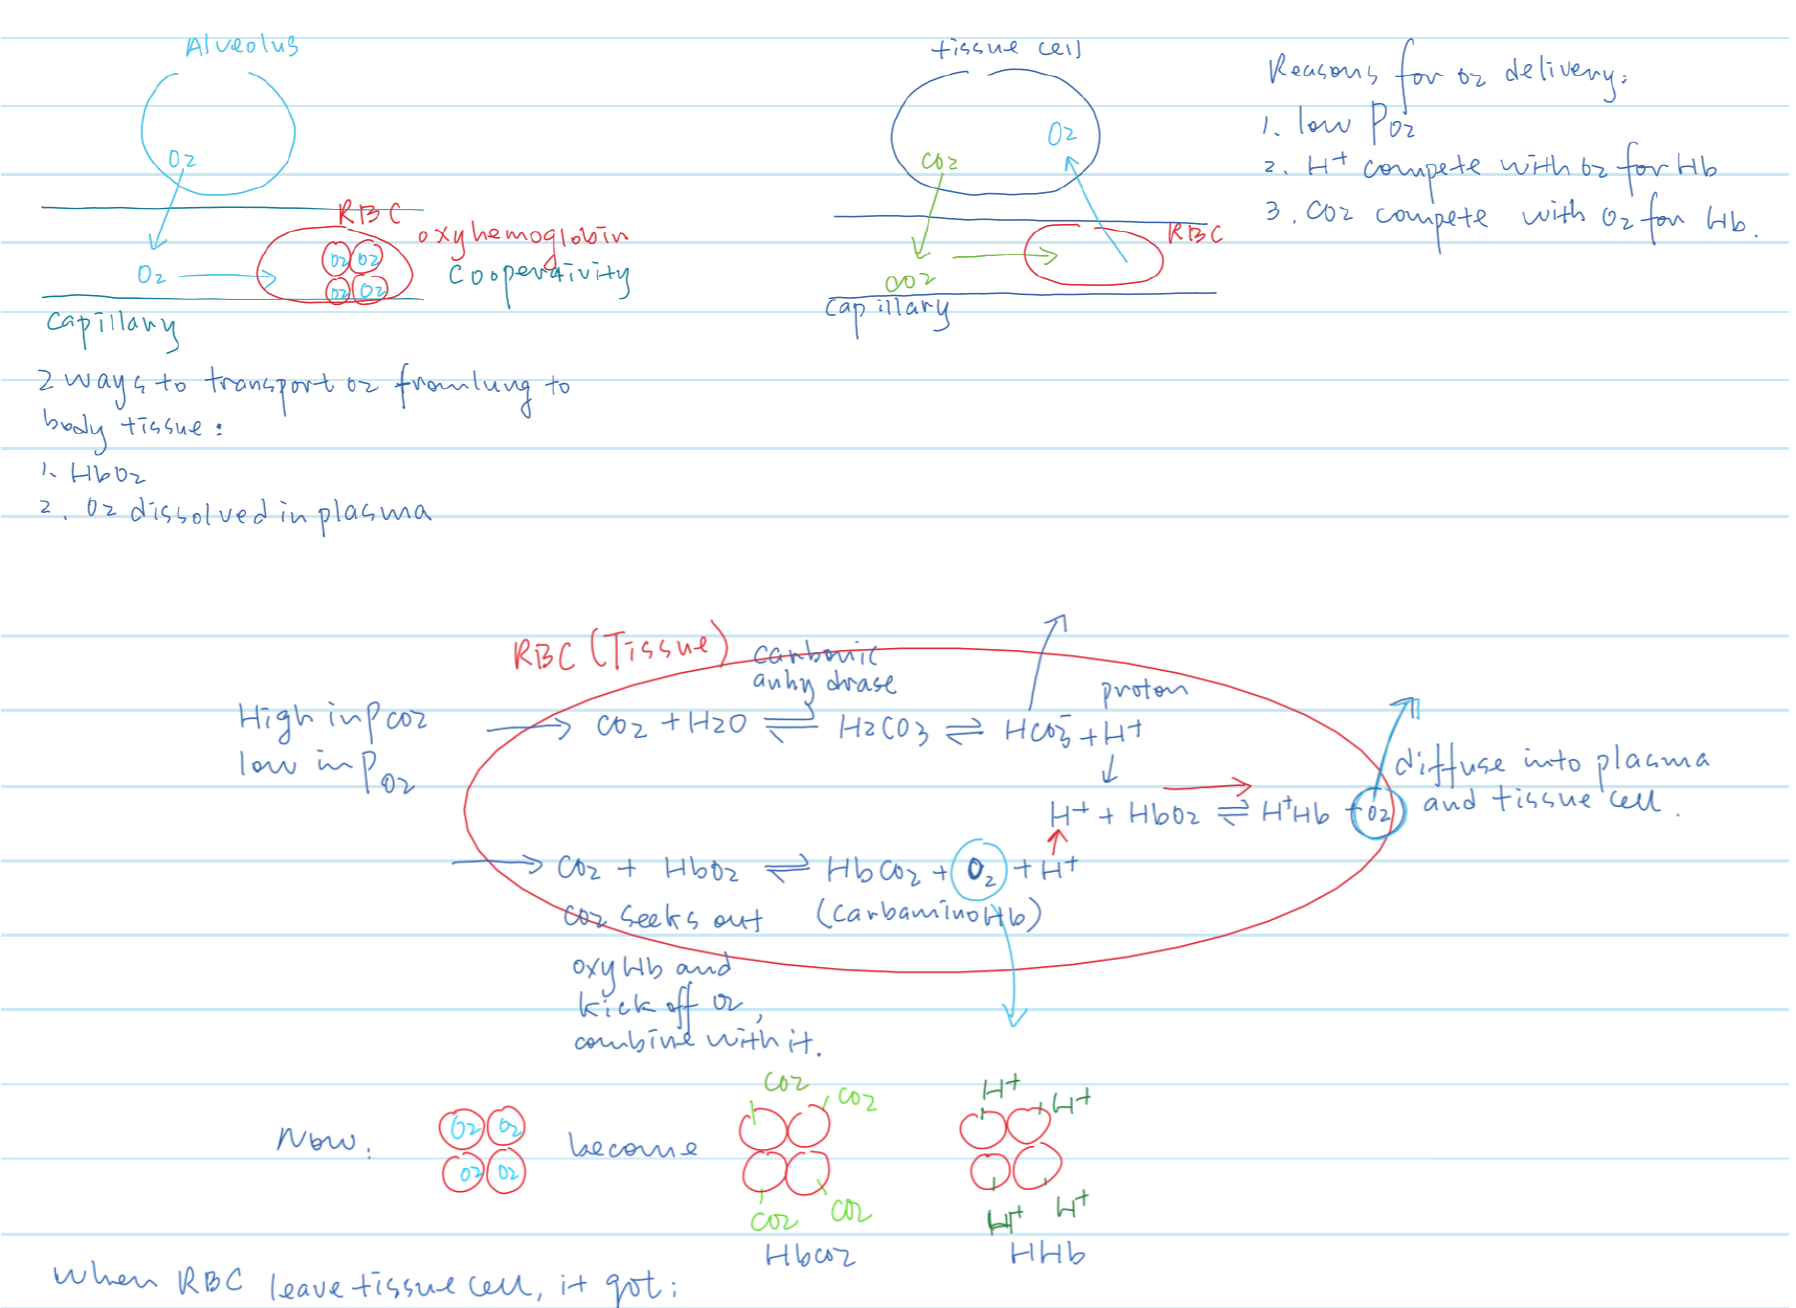 Alveolus
O2
RBC
oxyhemoglobin
O2
O2 O2
O2 O2
Cooperativity
Capillary
tissue cell
O2
CO2
RBC
CO2
Capillary
Reasons for O2 delivery:
1. low PO2
2. H+ compete with O2 for Hb
3. CO2 compete with O2 for Hb.
2 ways to transport O2 from lung to
body tissue:
1. HbO2
2. O2 dissolved in plasma
RBC (Tissue)
carbonic
anhydrase
proton
High in PCO2
low in PO2
CO2 + H2O ⇌ H2CO3 ⇌ HCO3- + H+
H+ + HbO2 ⇌ H+Hb + O2
diffuse into plasma
and tissue cell.
CO2 + HbO2 ⇌ HbCO2 + O2 + H+
CO2 seeks out (carbaminoHb)
oxyHb and
kick off O2,
combine with it.
Now:
O2 O2
O2 O2
become
CO2 CO2
CO2 CO2
HbCO2
H+ H+
H+ H+
HHb
When RBC leave tissue cell, it got: